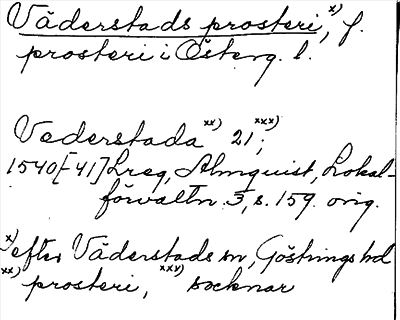 Väderstads prosteri, x) f.
prosteri i Österg. l.
Vederstada xx) 21 xxx);
1540[-41] Lreg, Almquist, Lokal-
förvaltn. 3, s. 159. orig.
x) efter Väderstads sn, Göstrings hd
xx) prosteri, xxx) socknar